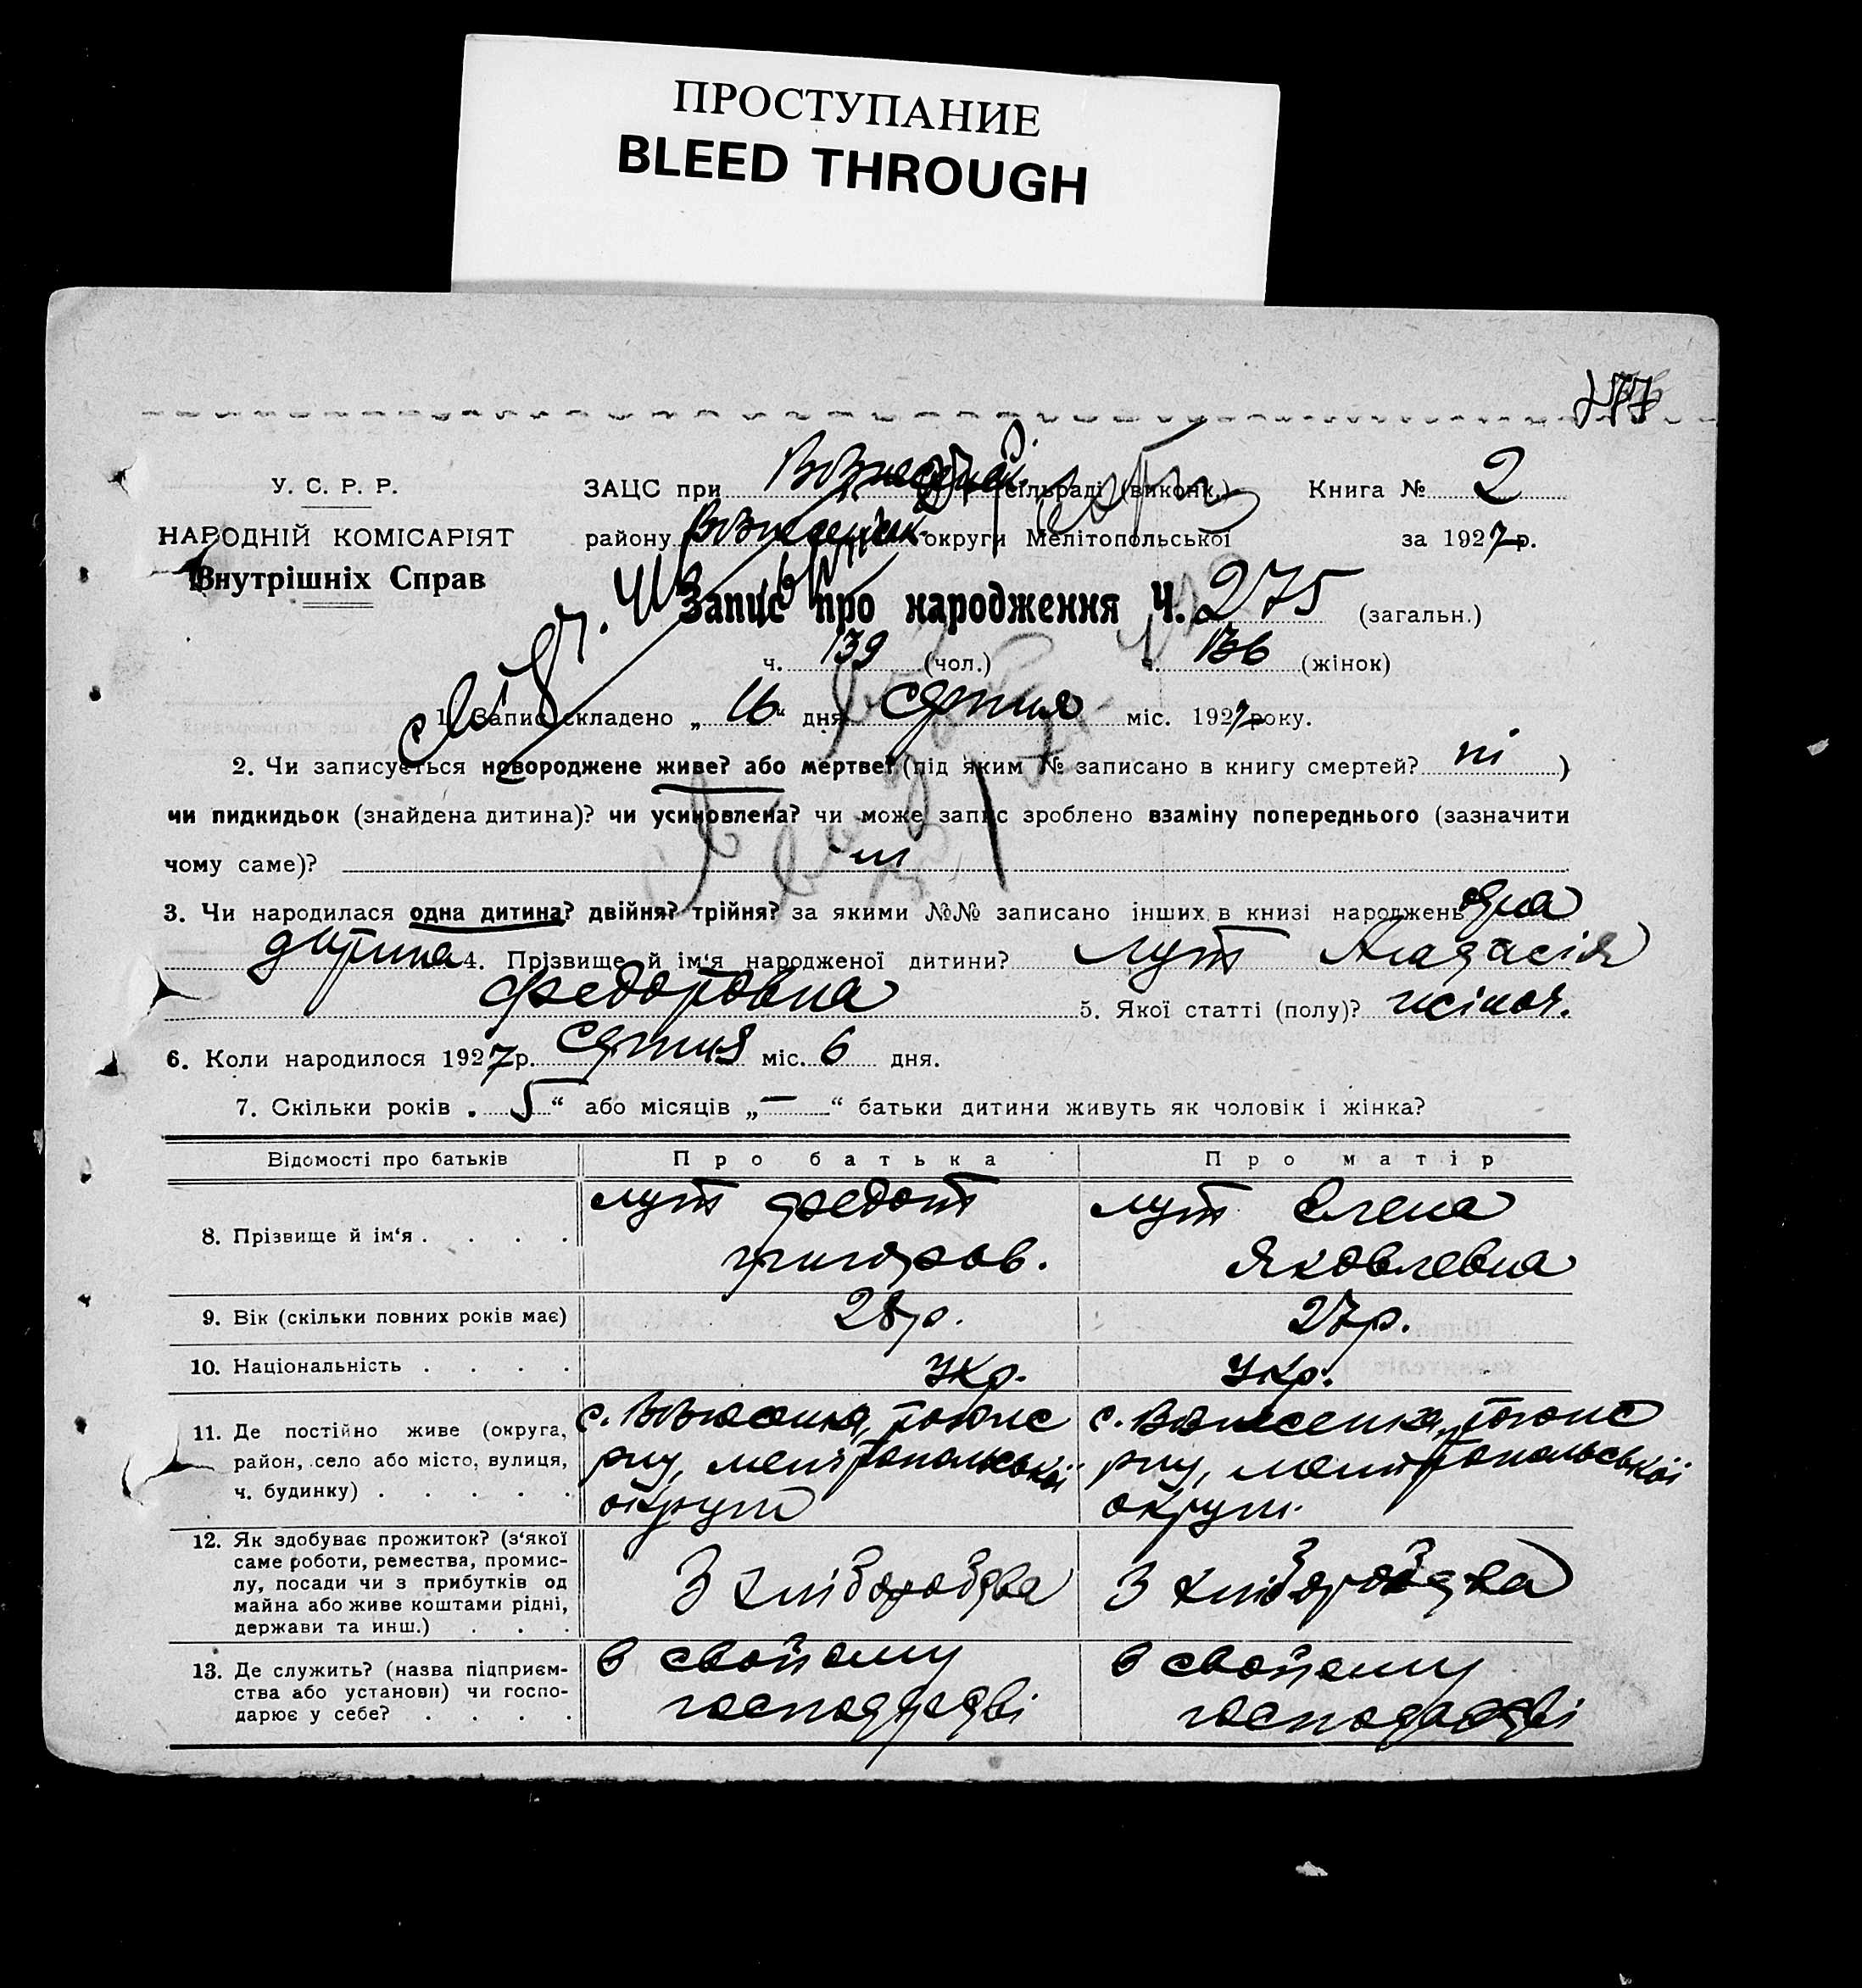 ПРОСТУПАНИЕ
BLEED THROUGH
277
У. С. Р. Р.
НАРОДНІЙ КОМІСАРІЯТ
Внутрішніх Справ
ЗАЦС при Вознесенск. сільраді (виконк.) Книга № 2
району Вознесенск. округи Мелітопольської за 1927 р.
Запис про народження Ч. 275 (загальн.)
ч. 139 (чол.) ч. 136 (жінок)
1. Запис складено „ 16 “ дня серпня міс. 1927 року.
2. Чи записується новороджене живе? або мертве? (під яким № записано в книгу смертей? ні )
чи пидкидьок (знайдена дитина)? чи усиновлена? чи може запис зроблено взаміну попереднього (зазначити
чому саме)? ні
3. Чи народилася одна дитина? двійня? трійня? за якими №№ записано інших в книзі народжень одна
дитина 4. Прізвище й ім‘я народженої дитини? Лут
Федоровна 5. Якої статті (полу)? жіноч.
6. Коли народилося 1927 р. серпня міс. 6 дня.
7. Скільки років „ 5 “ або місяців „ — “ батьки дитини живуть як чоловік і жінка?
Відомості про батьків Про батька Про матір
8. Прізвище й ім‘я . . . . Лут Федот Григоров. Лут Елена Яковлевна
9. Вік (скільки повних років має) 28 р. 27 р.
10. Національність . . . . Укр. Укр.
11. Де постійно живе (округа, с. Вознесенка, с. Вознесенка,
район, село або місто, вулиця, р-ну, мелітопольської р-ну, мелітопольської
ч. будинку) . . . . . округи округи
12. Як здобуває прожиток? (з‘якої
саме роботи, ремества, промис-
лу, посади чи з прибутків од З хліборобства З хліборобства
майна або живе коштами рідні,
держави та инш.) . . .
13. Де служить? (назва підприєм- в свойому в свойому
ства або установи) чи госпо- господарстві господарстві
дарює у себе? . . . .